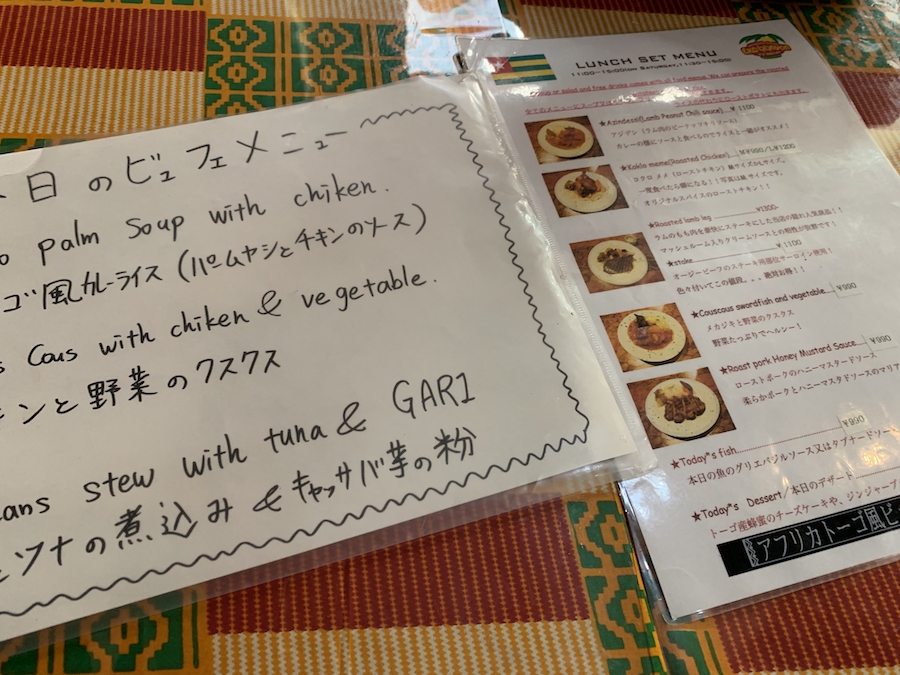 本日のビュフェメニュー
palm soup with chiken.
風カレーライス (パームヤシとチキンのソース)
Cous with chiken & vegetable.
ンと野菜のクスクス
stew with tuna & GARI
ツナの煮込み & キャッサバ芋の粉
LUNCH SET MENU
★Azindessi(Lamb Peanut Chili sauce)...￥1100
アジデシ(ラム肉のピーナッツチリソース)
カレーの様にソースと食べるのでライスと一緒がオススメ！
★Koklo meme(Roasted Chicken)....M￥990/L￥1200
コクロ メメ(ローストチキン)
一度食べたら癖になる！！写真は
オリジナルスパイスのローストチキン！！
★Roasted lamb leg ............￥1300-
ラムのもも肉を豪快にステーキにした当店の隠れ人気商品！！
マッシュルーム入りクリームソースとの相性が抜群です！
★stake............￥1100
オージービーフのステーキ サーロイン使用！
色々付いてこの値段。。。絶対お得！！
★Couscous swordfish and vegetable....￥990
メカジキと野菜のクスクス
野菜たっぷりでヘルシー！
★Roast pork Honey Mustard Sauce....￥990
ローストポークのハニーマスタードソース
柔らかポークとハニーマスタドソースのマリア
★Today"s fish............￥990
本日の魚のグリエバジルソース又はタプナードソー
★Today"s Dessert/本日のデザート
トーゴ産蜂蜜のチーズケーキや、ジンジャーブ
アフリカトーゴ風ビ